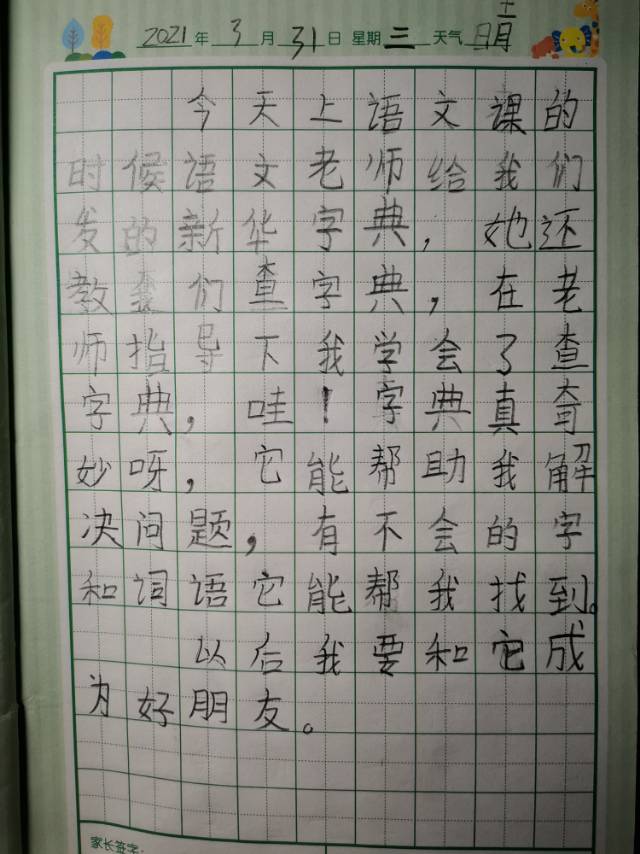 2021年3月31日 星期三 天气晴
今天上语文课的
时候语文老师给我们
发的新华字典，她还
教我们查字典，在老
师指导下我学会了查
字典，哇！字典真奇
妙呀，它能帮助我解
决问题，有不会的字
和词语它能帮我找到。
以后我要和它成
为好朋友。
家长签字：